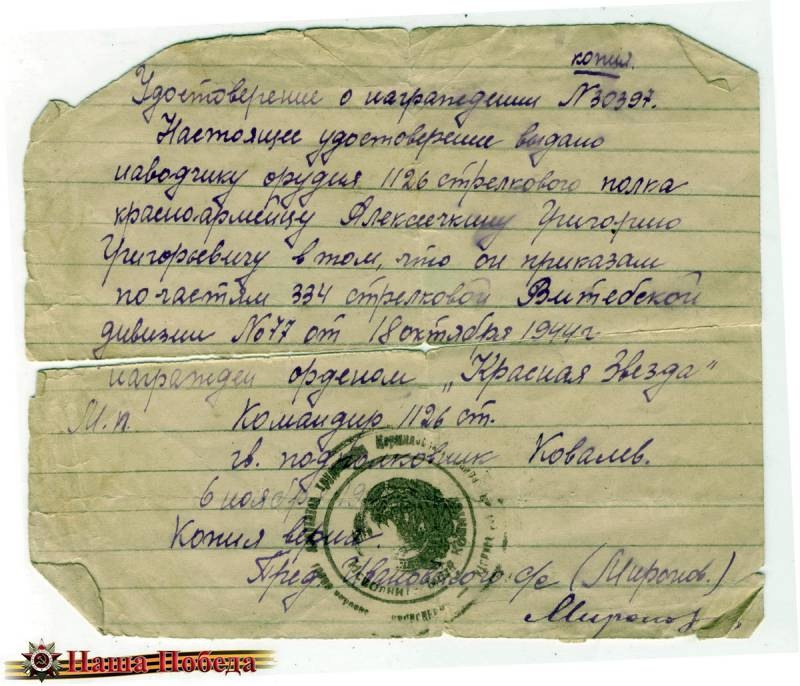 копия.
Удостоверение о награждении N30397.
Настоящее удостоверение выдано
наводчику орудия 1126 стрелкового полка
красноармейцу Алексечкину Григорию
Григорьевичу в том, что он приказам
по частям 334 стрелковой Витебской
дивизии No77 от 18 октября 1944г
награжден орденом „Красная Звезда"
М.п. Командир 1126 сп.
гв. подполковник Ковалев.
6 ноября
Копия верна.
Пред. Ивановского с/с (Миронов.)
Миронов
Наша Победа